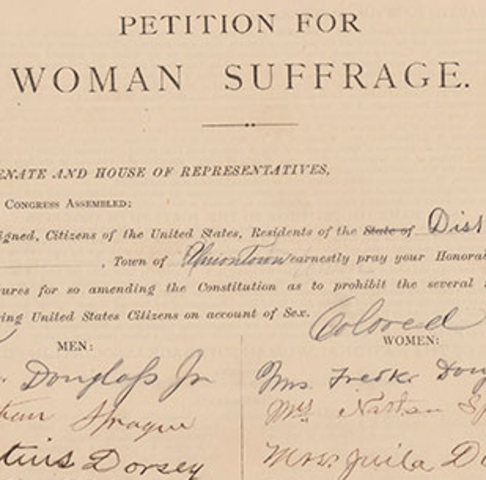 PETITION FOR
WOMAN SUFFRAGE.
ENATE AND HOUSE OF REPRESENTATIVES,
CONGRESS ASSEMBLED;
igned, Citizens of the United States, Residents of the State of Dist
, Town of Uniontown earnestly pray your Honora
ures for so amending the Constitution as to prohibit the several
ing United States Citizens on account of Sex.
Colored
MEN: WOMEN:
Douglass Jr Mrs. Fredk Doug
Sprague Mrs Nathan Sp
Dorsey Mrs. Juila Do